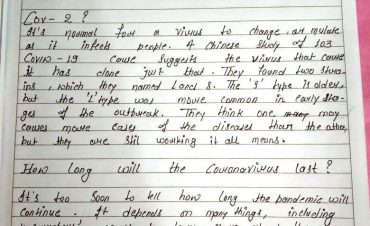 Cov - 2 ?
It's normal for a virus to change, or mutate
as it infects people. A Chinese study of 103
COVID - 19 cause suggests the virus that cause
it has done just that. They found two stra-
ins, which they named L and S. The 'S' type is older,
but the 'L' type was more common in early sta-
ges of the outbreak. They think one may
causes more cases of the diseases than the other,
but they are stil working it all means.
How long will the Coronavirus last ?
It's too soon to tell how long the pandemic will
continue. It depends on many things, including